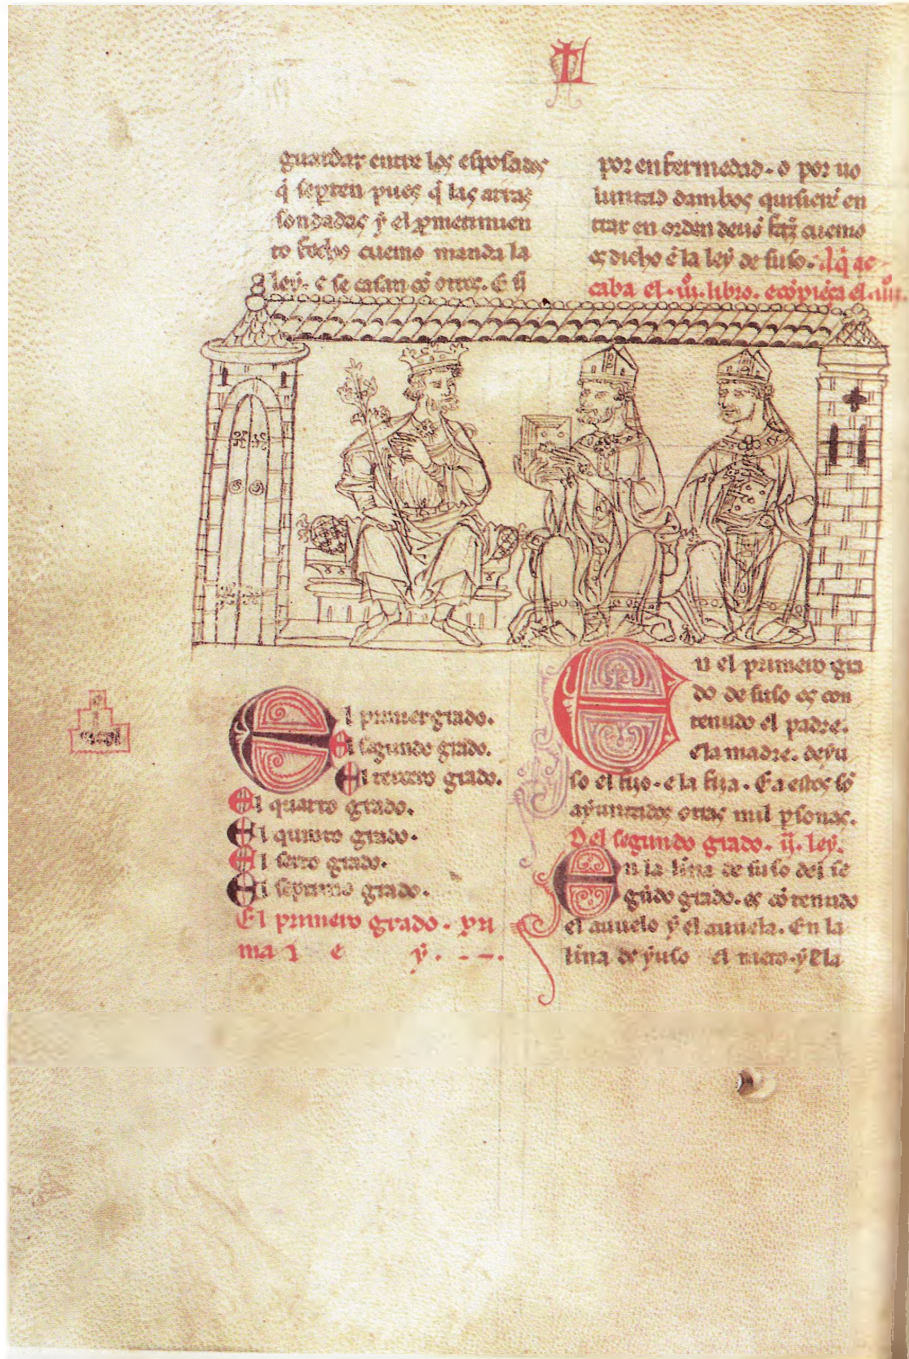 L
guardar entre los esposados
q̃ septen pues q̃ las arras
son dadas ẏ el ꝓmetimien
to fecho cuemo manda la
ley. e se casan cõ otros. E si
por enfermedad. o por uo
luntad dambos quisierẽ en
trar en orden
cuemo
es dicho ẽ la leẏ de suso. Aq̃ ac
caba el .iii. libro. e cõpieça el .iiii.
El primer grado.
El segundo grado.
El tercero grado.
El quarto grado.
El quinto grado.
El sexto grado.
El septimo grado.
El primero grado. pri
ma l e ẏ. - -.
En el primero gra
do de suso es con
tenudo el padre.
e la madre. deyu
so el fijo. e la fija. E a estos sõ
aẏuntados otras mil ꝑsonas.
Del segundo grado. ii. leẏ.
En la liña de suso del se
gũdo grado. es cõtenudo
el auuelo ẏ el auuela. En la
liña de ẏuso el nieto. ẏ la